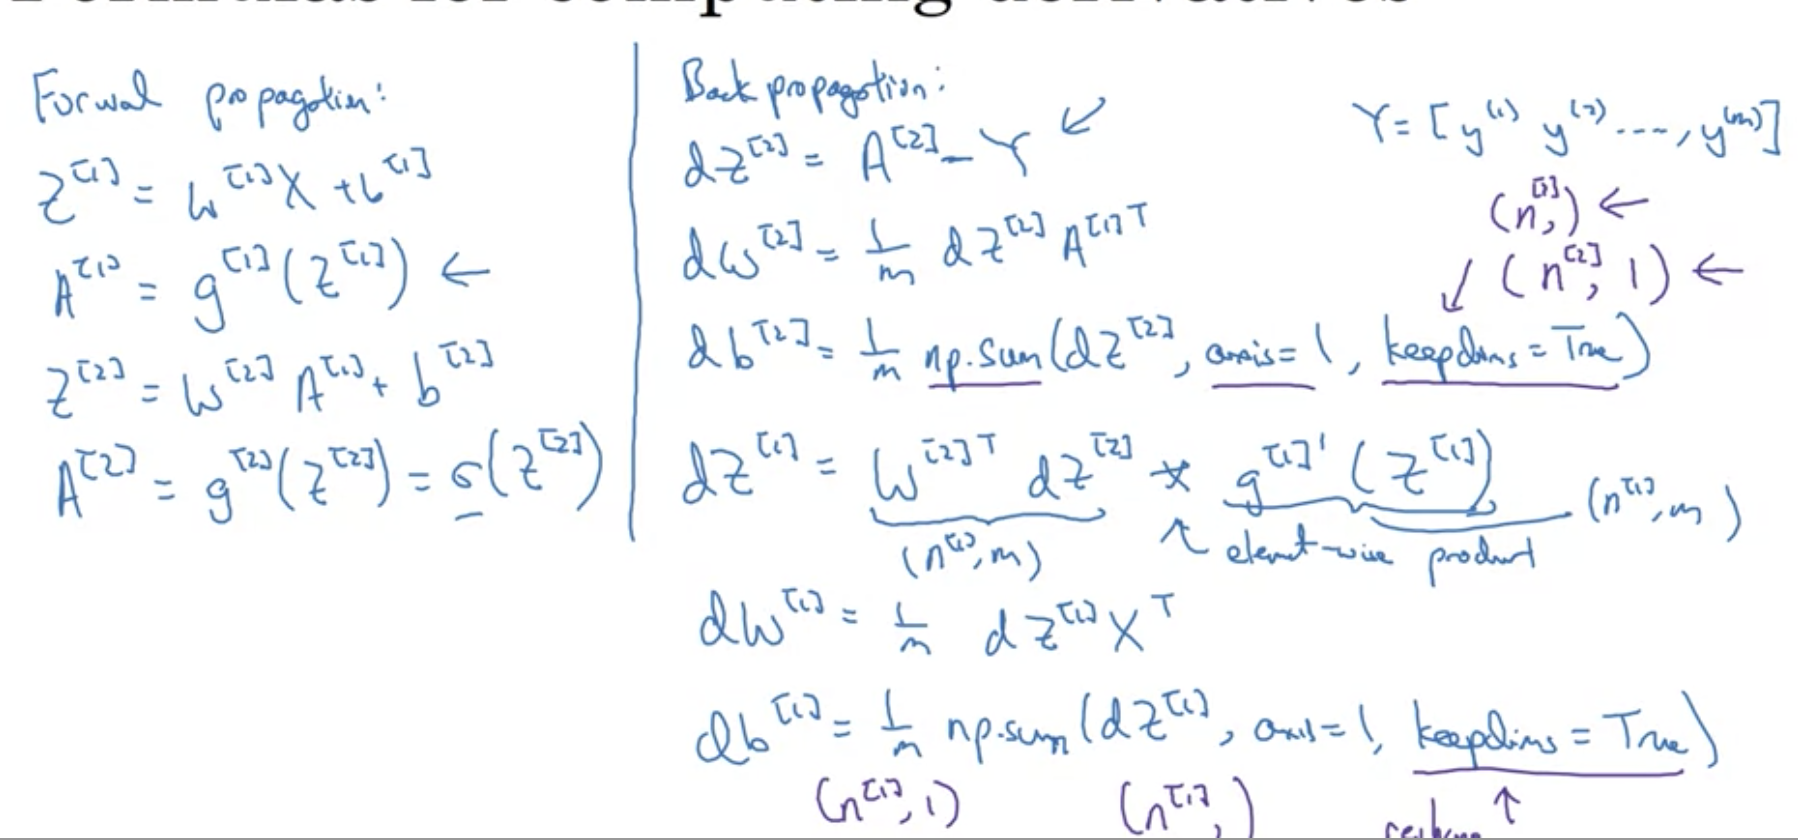 Formulas for computing derivatives
Forward propagation:
Z^[1] = W^[1]X + b^[1]
A^[1] = g^[1](Z^[1]) ←
Z^[2] = W^[2] A^[1] + b^[2]
A^[2] = g^[2](Z^[2]) = σ(Z^[2])
Back propagation:
dZ^[2] = A^[2] - Y ↙
Y = [y^(1) y^(2) ...., y^(m)]
dW^[2] = 1/m dZ^[2] A^[1]T
(n^[2],) ←
↙ (n^[2], 1) ←
db^[2] = 1/m np.sum(dZ^[2], axis=1, keepdims=True)
dZ^[1] = W^[2]T dZ^[2] * g^[1]'(Z^[1])
(n^[1], m) ↖ element-wise product (n^[1], m)
dW^[1] = 1/m dZ^[1] X^T
db^[1] = 1/m np.sum(dZ^[1], axis=1, keepdims=True)
(n^[1], 1) (n^[1],) ↑